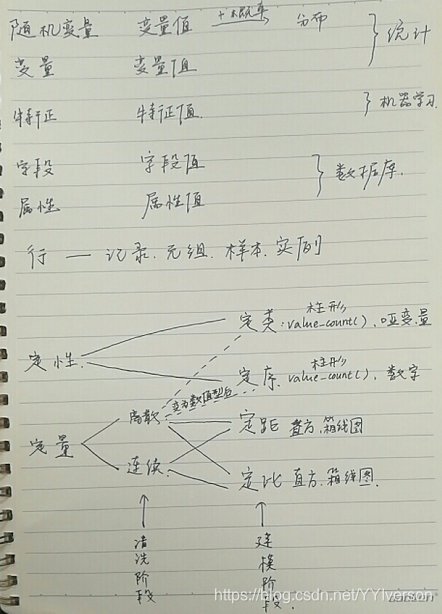 随机变量 变量值 +概率 分布
变量 变量值 统计
特征 特征值 机器学习
字段 字段值
属性 属性值 数据库.
行 — 记录.元组.样本.实例
柱形
定类:value_count().哑变量
定性. 柱形
定序.value_count().数字
离散 变为数值型后
定量 定距 直方.箱线图
连续. 定比 直方.箱线图.
清洗阶段 建模阶段.
https://blog.csdn.net/YYIverson